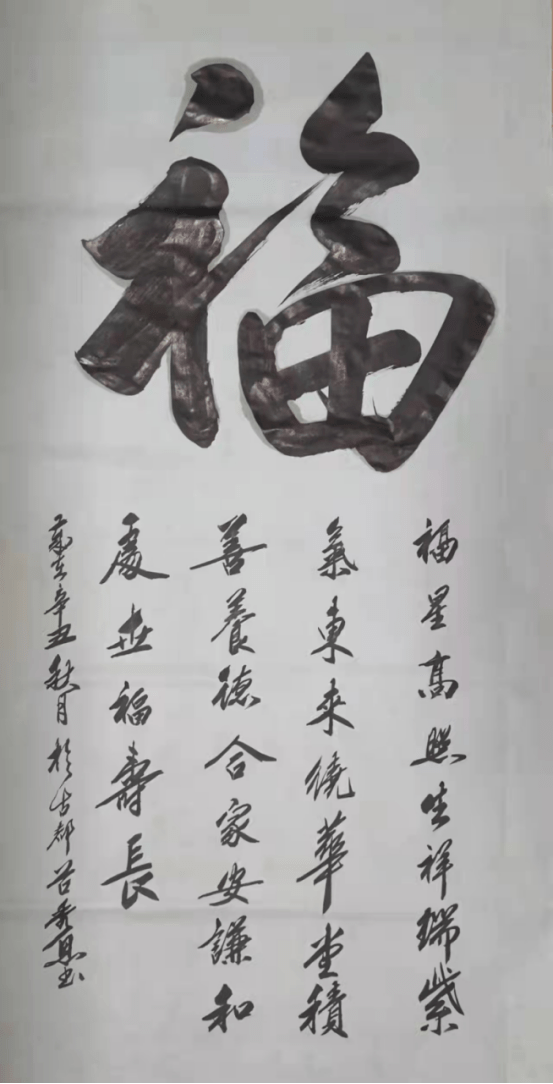 福
福星高照生祥瑞紫
氣東來繞華堂積
善養德合家安謙和
處世福壽長
歲在辛丑秋月於古都呂秀書